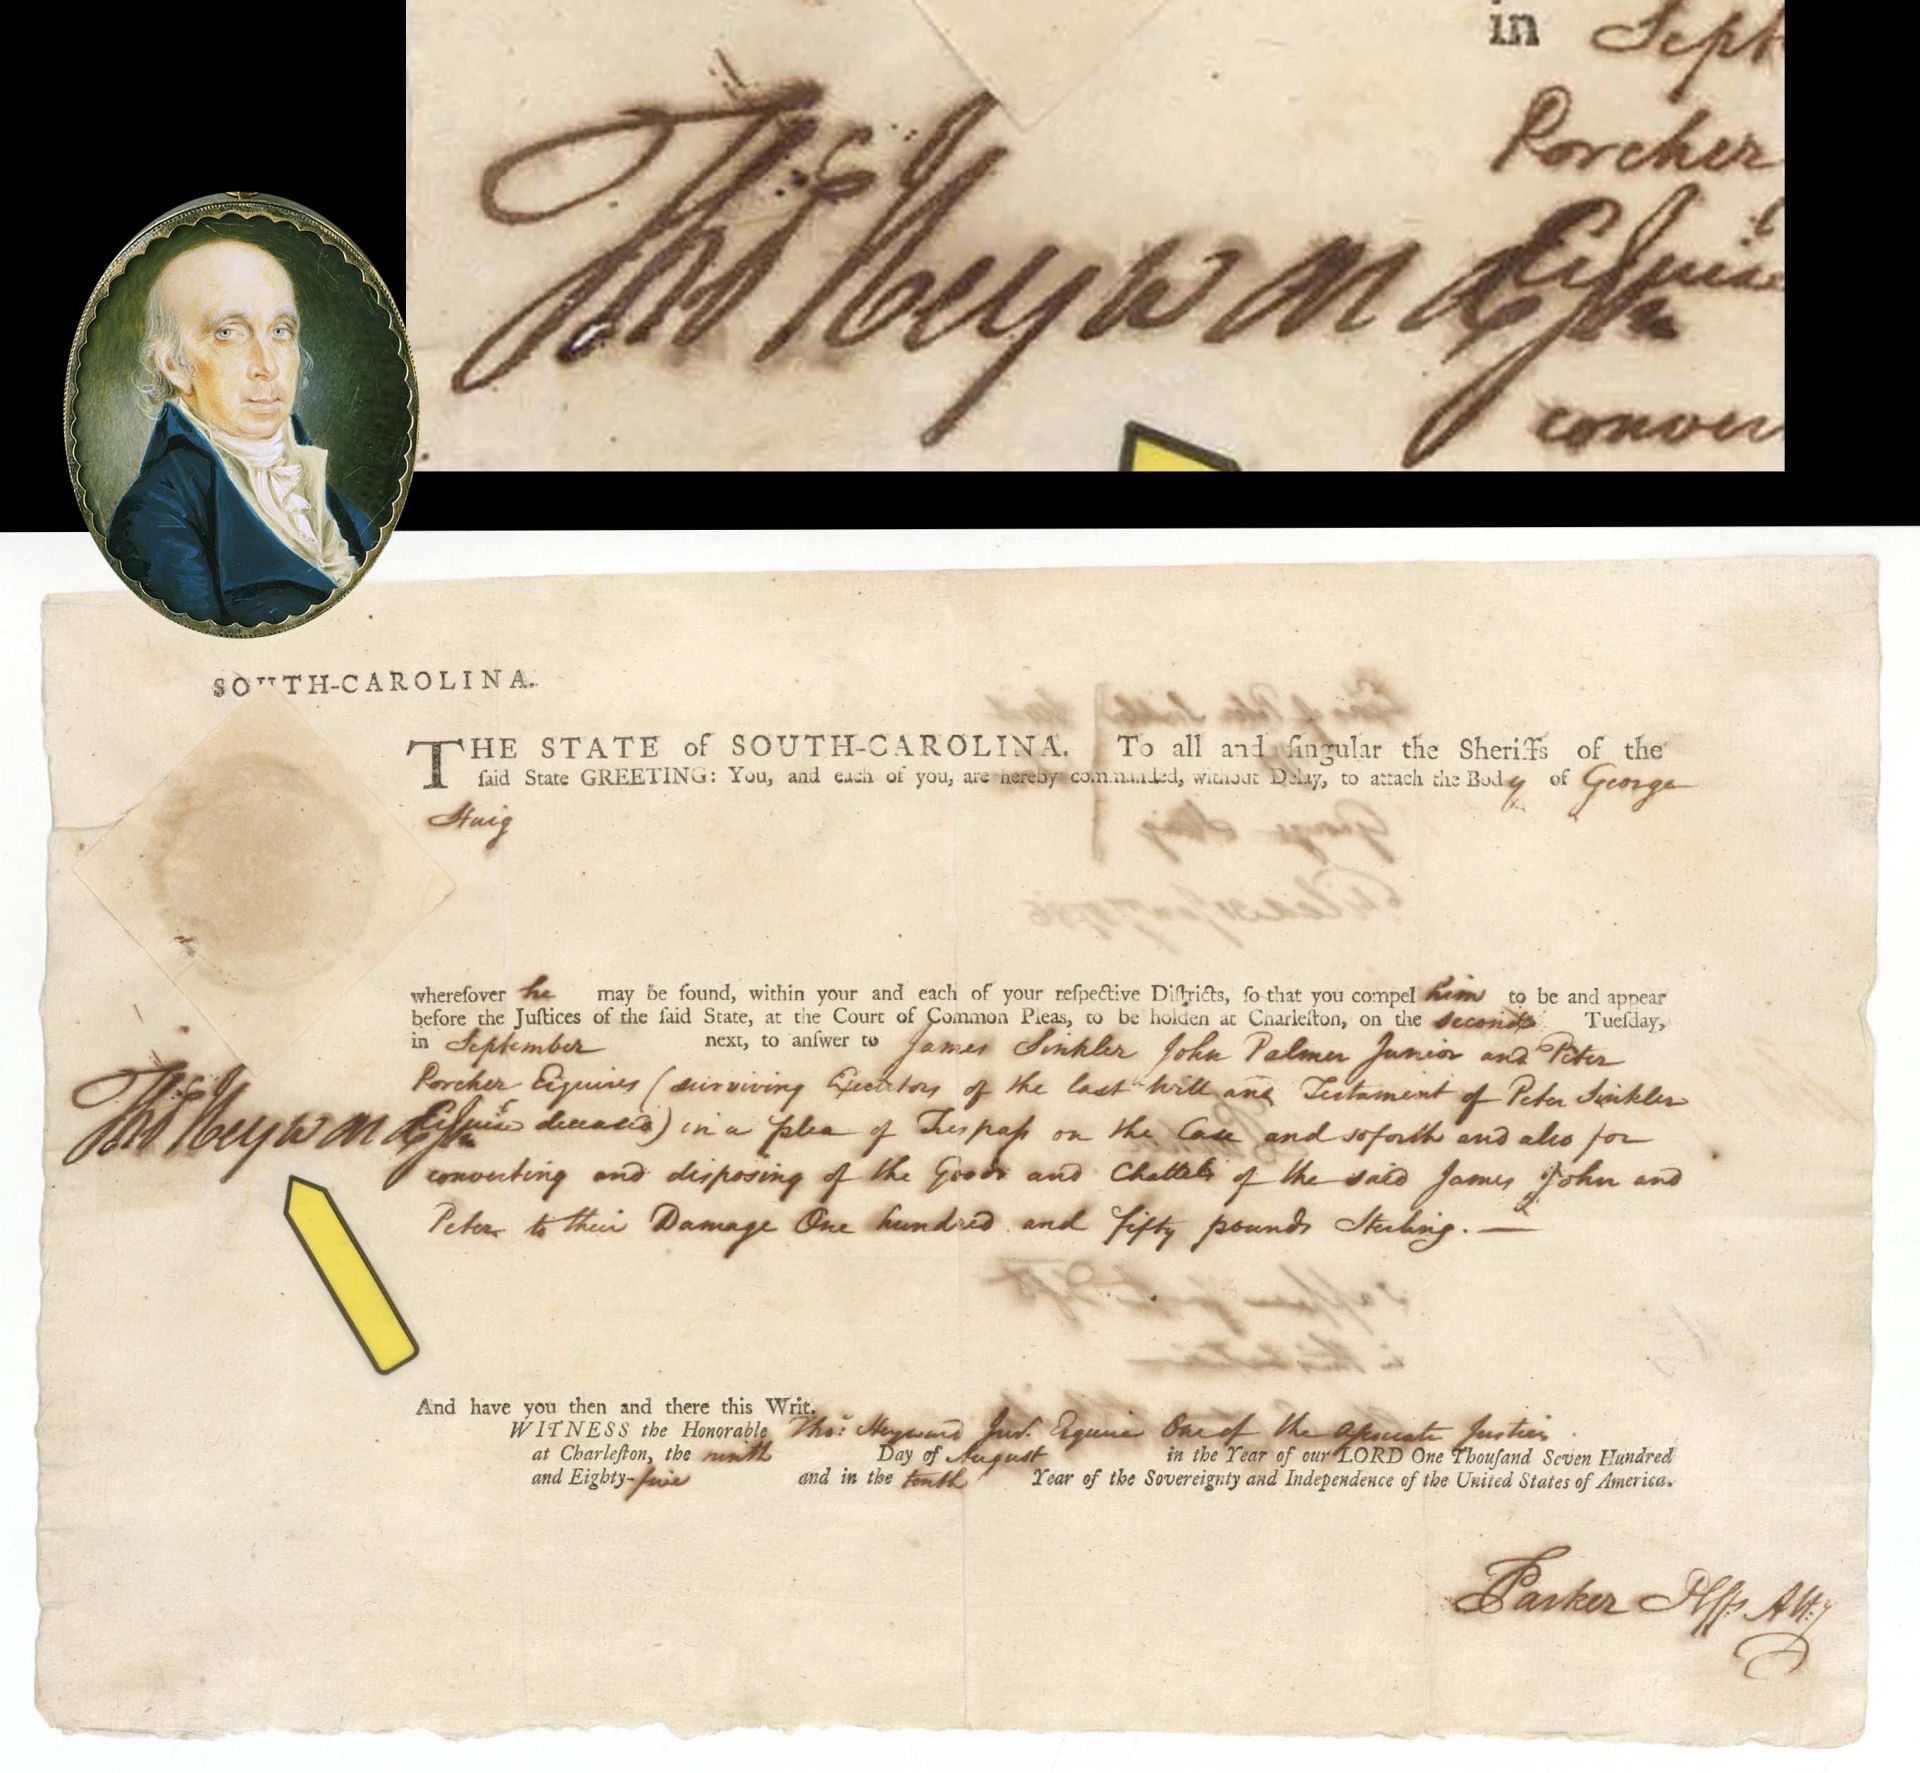 in Sept
Porcher
Thos Heyward Jun
Esquire
conver
SOUTH-CAROLINA.
THE STATE of SOUTH-CAROLINA. To all and ſingular the Sheriffs of the
ſaid State GREETING: You, and each of you, are hereby commanded, without Delay, to attach the Body of George
Haig
whereſover he may be found, within your and each of your reſpective Diſtricts, ſo that you compel him to be and appear
before the Juſtices of the ſaid State, at the Court of Common Pleas, to be holden at Charleſton, on the second Tueſday,
in September next, to anſwer to James Sinkler John Palmer Junior and Peter
Porcher Esquires (surviving Executors of the last Will and Testament of Peter Sinkler
Thos Heyward Jun
Esquire deceased) in a plea of Trespass on the Case and soforth and also for
converting and disposing of the Goods and Chattels of the said James John and
Peter to their Damage One hundred and fifty pounds Sterling. —
And have you then and there this Writ.
WITNESS the Honorable Thos: Heyward Junr. Esquire One of the associate Justices
at Charleſton, the ninth Day of August in the Year of our LORD One Thouſand Seven Hundred
and Eighty-five and in the tenth Year of the Sovereignty and Independence of the United States of America.
Parker Plffs Atty